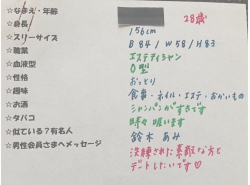 ☆なまえ・年齢 28歳
☆身長 156cm
☆スリーサイズ B84/W58/H83
☆職業 エステティシャン
☆血液型 O型
☆性格 おっとり
☆趣味 食事・ネイル・エステ・おかいもの
☆お酒 シャンパンがすきです
☆タバコ 時々吸います
☆似ている?有名人 鈴木あみ
☆男性会員さまへメッセージ 洗練された素敵な方と
デートしたいです♡